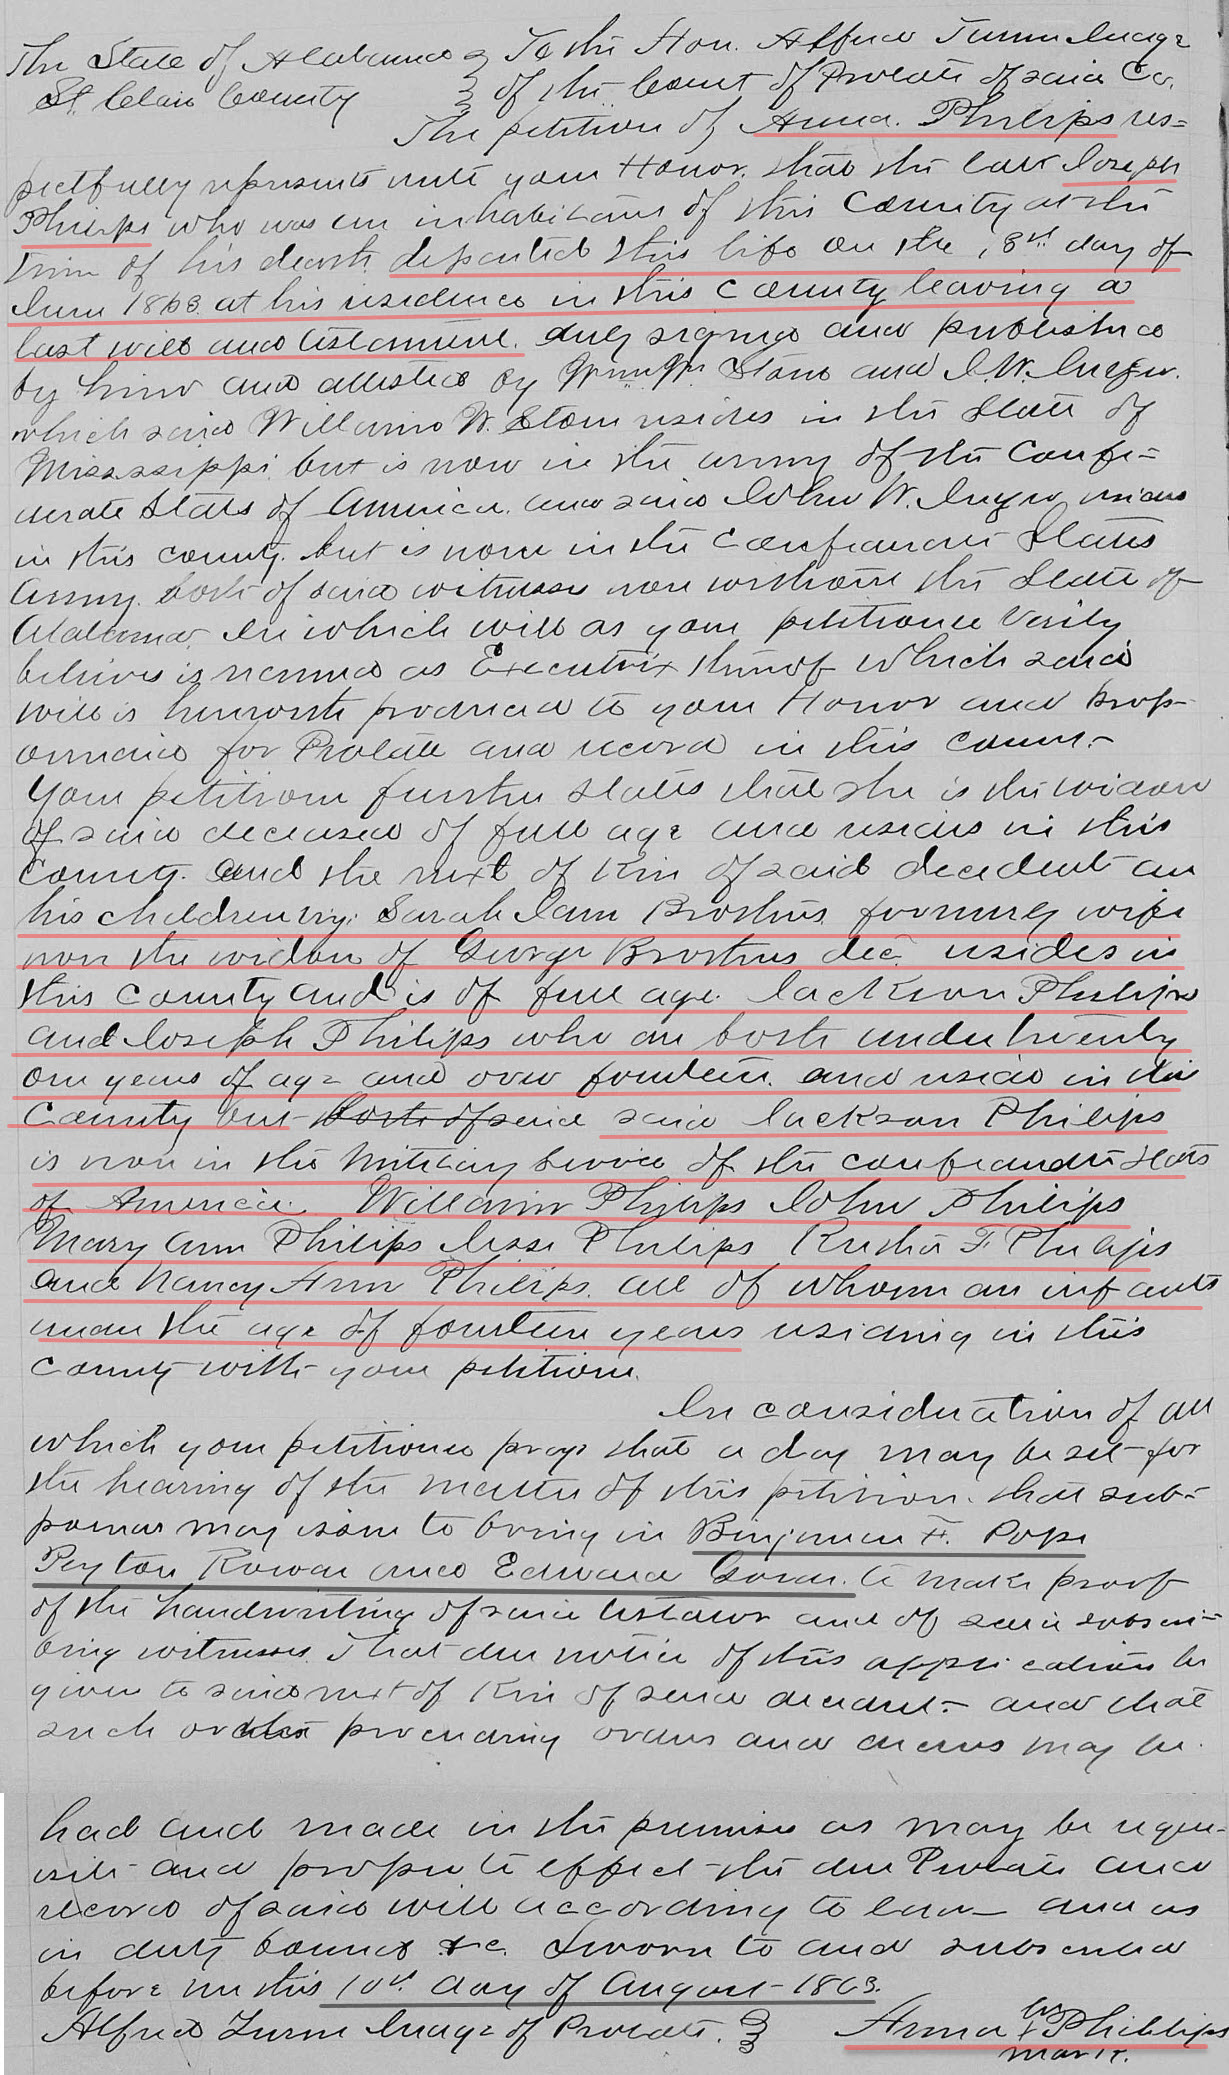 The State of Alabama } To the Hon. Alfred Turner Judge
St. Clair County } of the Court of Probate of said Co.
The petition of Anna Philips res=
pectfully represents unto your Honor that the late Joseph
Philips who was an inhabitant of this County at the
time of his death departed this life on the 13th day of
June 1863 at his residence in this County leaving a
last will and testament duly signed and published
by him and attested by Wm W. Stone and J. W.
which said William W. Stone resides in the State of
Mississippi but is now in the army of the Confe=
derate States of America and said John W. resides
in this county but is now in the Confederate States
Army both of said witnesses now without the State of
Alabama In which will as your petitioner verily
believes is named as Executrix thereof which said
will is herewith produced to your Honor and prop-
ounded for Probate and record in this Court.
Your petitioner further states that she is the widow
of said deceased of full age and resides in this
County. and the next of Kin of said decedent are
his children viz: Sarah Jane Brothers formerly wife
now the widow of George Brothers dec. resides in
this County and is of full age. Jackson Philips
and Joseph Philips who are both under twenty
one years of age and over fourteen and reside in this
County but both of said said Jackson Philips
is now in the military service of the confederate states
of America. William Philips John Philips
Mary Ann Philips Jesse Philips F Philips
and Nancy Ann Philips all of whom are infants
under the age of fourteen years residing in this
County with your petitioner.
In consideration of all
which your petitioner prays that a day may be set for
the hearing of the matter of this petition. that sub=
poenas may issue to bring in Benjamin F. Pope
Peyton Rowan and Edward to make proof
of the handwriting of said testator and of said subscri=
bing witnesses. That due notice of this application be
given to said next of Kin of said decedent and that
such other proceeding orders and decrees may be
had and made in the premises as may be requi-
site and proper to effect the due Probate and
record of said will according to law and as
in duty bound &c. Sworn to and subscribed
before me this 10th day of August 1863.
Alfred Turner Judge of Probate. } Anna her x mark Phillips